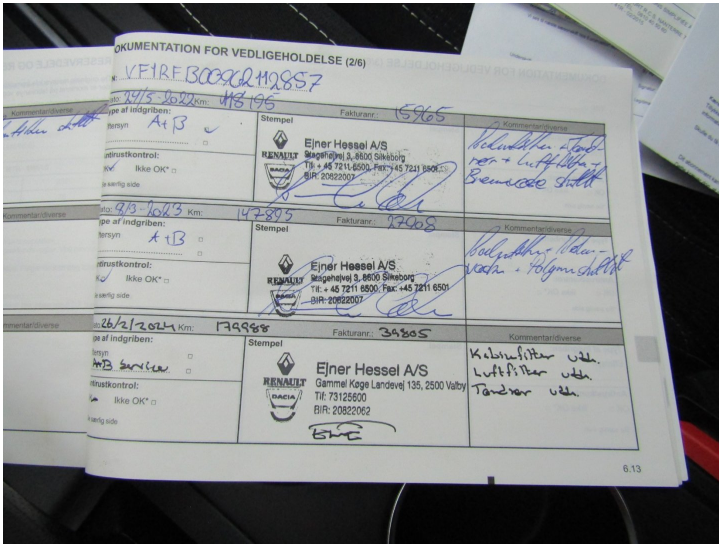 DOKUMENTATION FOR VEDLIGEHOLDELSE (2/6)
VF1RFB00962112857
Kommentar/diverse
Dato: 24/5-2022 Km: 118195
Fakturanr.: 15965
Kommentar/diverse
Type af indgriben:
Eftersyn A+B
Antirustkontrol:
Ikke OK*
Se særlig side
Stempel
RENAULT
DACIA
Ejner Hessel A/S
Stagehøjvej 3, 8600 Silkeborg
Tlf: + 45 7211 6500, Fax: +45 7211 6501
BIR: 20822007
Kabinefilter + Tænd
rør + Luftfilter +
Bremsevæske skiftet
Kommentar/diverse
Dato: 9/3-2023 Km: 147895
Fakturanr.: 27968
Kommentar/diverse
Type af indgriben:
Eftersyn A+B
Antirustkontrol:
Ikke OK*
Se særlig side
Stempel
RENAULT
DACIA
Ejner Hessel A/S
Stagehøjvej 3, 8600 Silkeborg
Tlf: + 45 7211 6500, Fax: +45 7211 6501
BIR: 20822007
skiftet
Kommentar/diverse
Dato: 26/2/2024 Km: 179988
Fakturanr.: 39805
Kommentar/diverse
Type af indgriben:
Eftersyn
A+B Service
Antirustkontrol:
Ikke OK*
Se særlig side
Stempel
RENAULT
DACIA
Ejner Hessel A/S
Gammel Køge Landevej 135, 2500 Valby
Tlf: 73125600
BIR: 20822062
Kabinefilter udsk.
Luftfilter udsk.
Tændrør udsk.
6.13